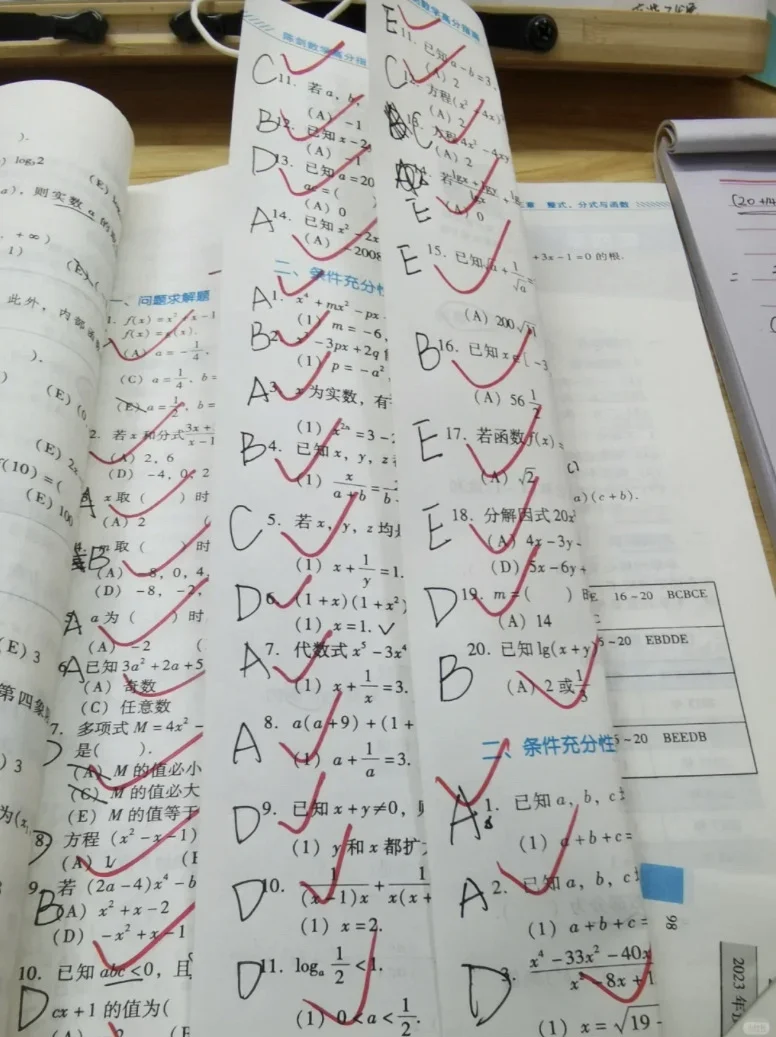 ).
log₅2
(E) log
a), 则实数a的
, +∞)
1)
(E) (
此外, 内部函
).
(E) (0
(E) 2x
f(10) = (
(E) 100
(E) 3
第四象
) 3
为(x
一、问题求解题
1. f(x)=x³+x-1
f(x)=g(x).
(A) a=-1/4,
(C) a=1/4, b=
(E) a=1/2, b=
2. 若x和分式 3x+
x-1
(A) 2, 6
(D) -4, 0, 2
A x取( ) 时
(A) 2 (
B m取( ) 时
(A) -8, 0, 4,
(D) -8, -2,
A a为( ) 时
(A) -2 (
6. A 已知3a²+2a+5
(A) 奇数
(C) 任意数
7. 多项式M=4x²-
D 是( ).
(A) M的值必小
(C) M的值必大
(E) M的值等于
8. 方程(x²-x-1)
D (A) 1 (E
9. 若(2a-4)x⁴-b
B (A) x²+x-2
(D) -x²+x-1
10. 已知abc<0, 且
D cx+1的值为(
陈剑数学高分指
C 11. 若a, b,
(A) -1
B 12. 已知x-2
(A) -1
D 13. 已知a=20
ac=( )
(A) 0
A 14. 已知x²-2x
(A) -2008
二、条件充分性
A 1. x⁴+mx²-px
(1) m=-6,
B 2. x³-3px+2q
(1) p=-a²
A 3. x为实数, 有
(1) x²ⁿ=3-
B 4. 已知x, y, z
(1) x/(a+b)=
C 5. 若x, y, z均
(1) x+1/y=1.
D 6. (1+x)(1+x²)
(1) x=1. ✓
A 7. 代数式x⁵-3x⁴
(1) x+1/x=3.
A 8. a(a+9)+(1+
(1) a+1/a=3.
D 9. 已知x+y≠0,
(1) y和x都扩
D 10. 1/(x-1)x+1/x(x+
(1) x=2.
D 11. logₐ1/2<1.
(1) 0<a<1/2.
数学高分指南
E 11. 已知a-b=3,
(A) 2
C 12. 方程(x²-4x)
(A) 2
C 13. 方程4x²-4xy
(A) 2
E 14. 若lgx+lgx
lgx
(A) 0
E 15. 已知√a+1/√a=
(A) 200√
B 16. 已知x∈[-3
(A) 56 1/2
E 17. 若函数f(x)=
(A) √2
E 18. 分解因式20x²
(A) 4x-3y-
(D) 5x-6y+
D 19. m=( ) 时
(A) 14
B 20. 已知lg(x+y)
(A) 2或1/3
二、条件充分性
A 1. 已知a, b, c
(1) a+b+c=
A 2. 已知a, b, c
(1) a+b+c=
D 3. x⁴-33x²-40x
x²-8x+1
(1) x=√19-
章 整式、分式与函数
+3x-1=0的根.
a)(c+b).
E 16~20 BCBCE
5~20 EBDDE
5~20 BEEDB
98
2023年
(20+14